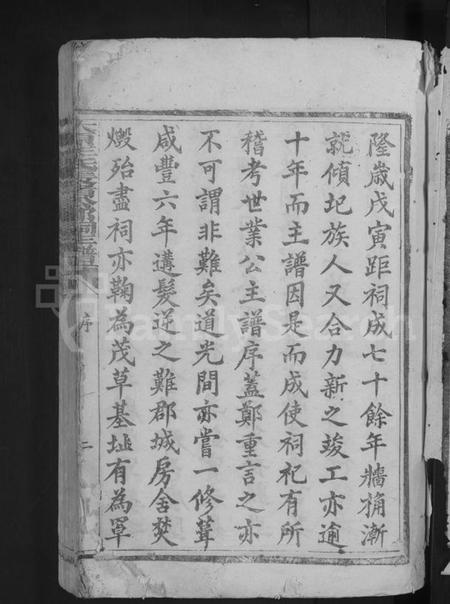 隆歲戊寅距祠成七十餘年牆桷漸
就傾圮族人又合力新之竣工亦逾
十年而主譜因是而成使祠祀有所
稽考世業公主譜序蓋鄭重言之亦
不可謂非難矣道光間亦嘗一修葺
咸豐六年遘髮逆之難郡城房舍焚
燬殆盡祠亦鞠為茂草基址有為單
序
二
FamilySearch